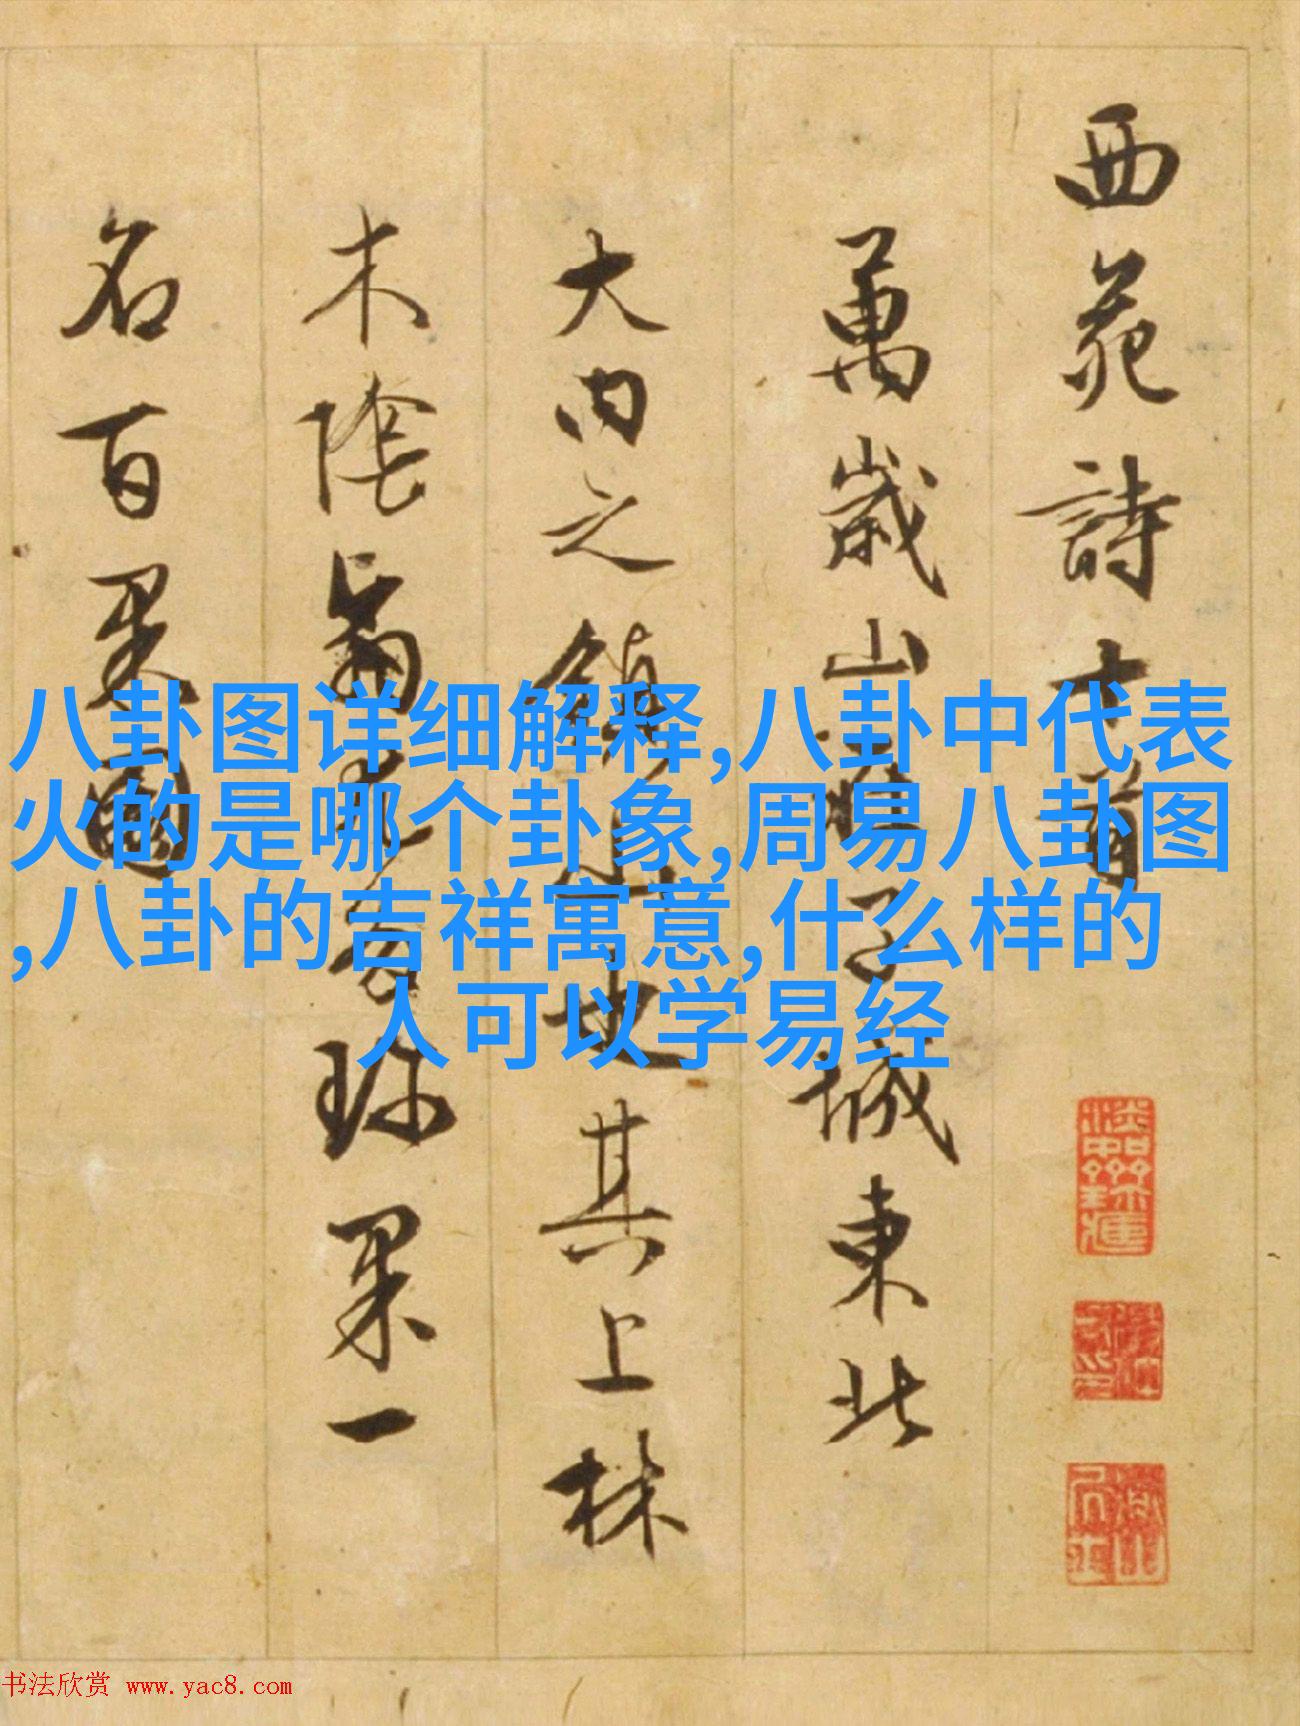 西苑詩十首
萬歲山在子城東北
大內之鎮山也其上林
木陰翳尤多珍果一
名百果園
八卦图详细解释,八卦中代表
火的是哪个卦象,周易八卦图
,八卦的吉祥寓意,什么样的
人可以学易经
书法欣赏 www.yac8.com